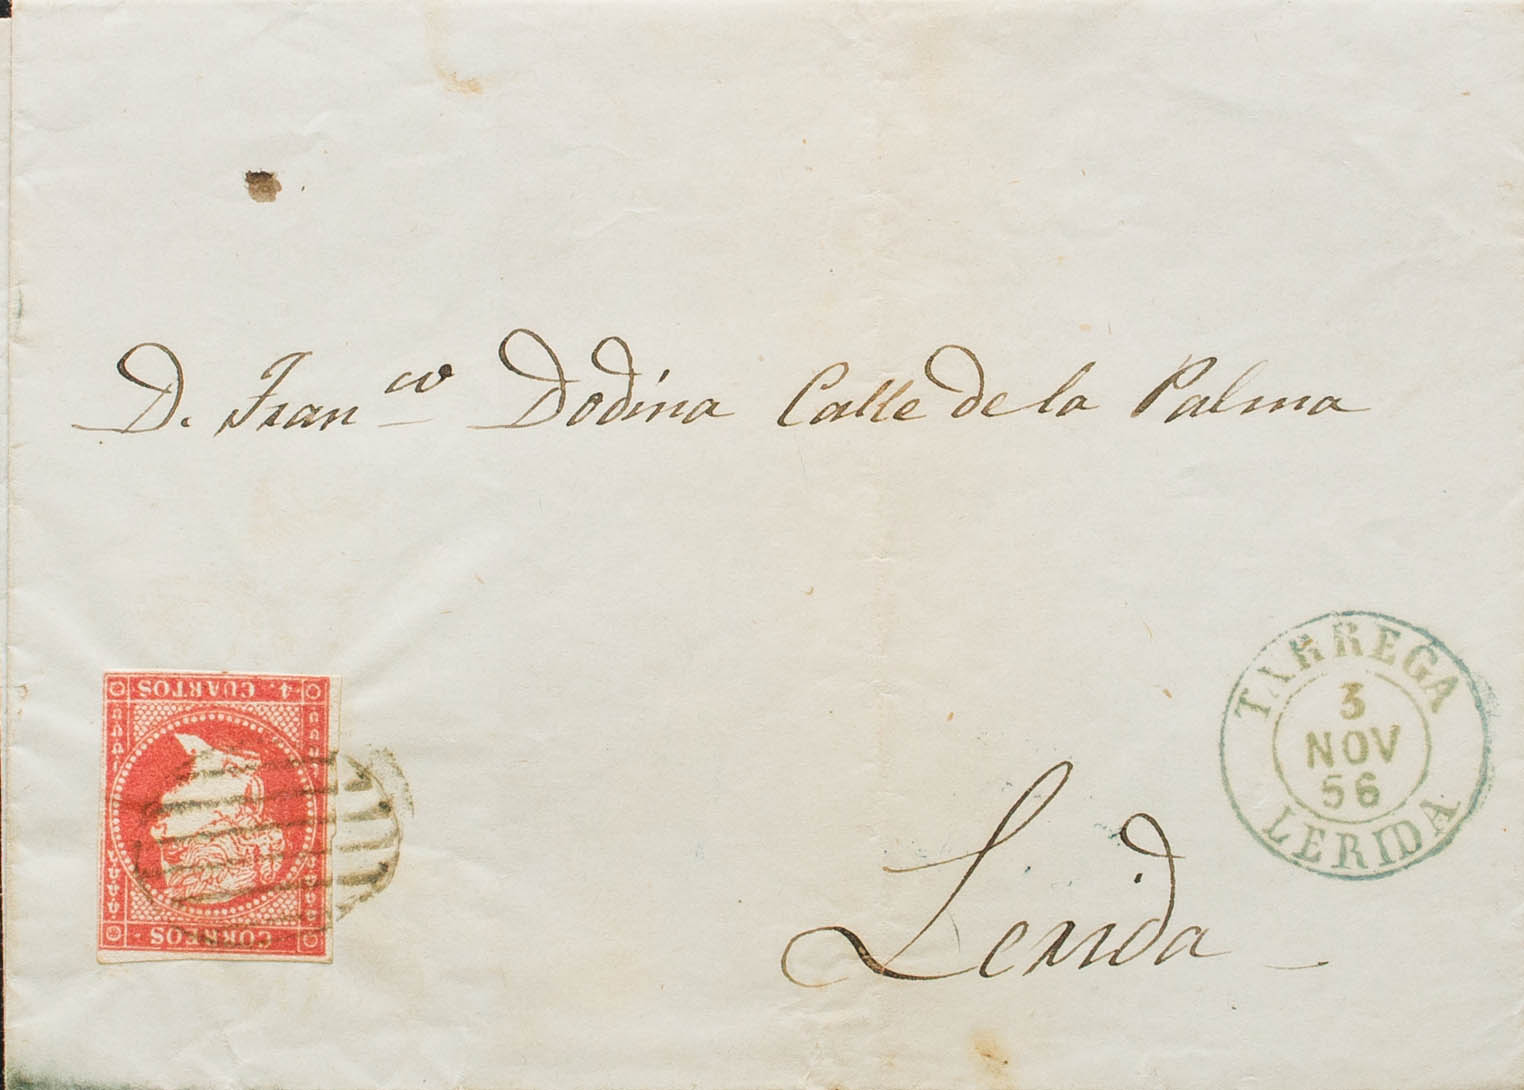 D. Fran^co Dodina Calle de la Palma
4. CUARTOS
CORREOS.
TARREGA
3
NOV
56
LERIDA
Lerida